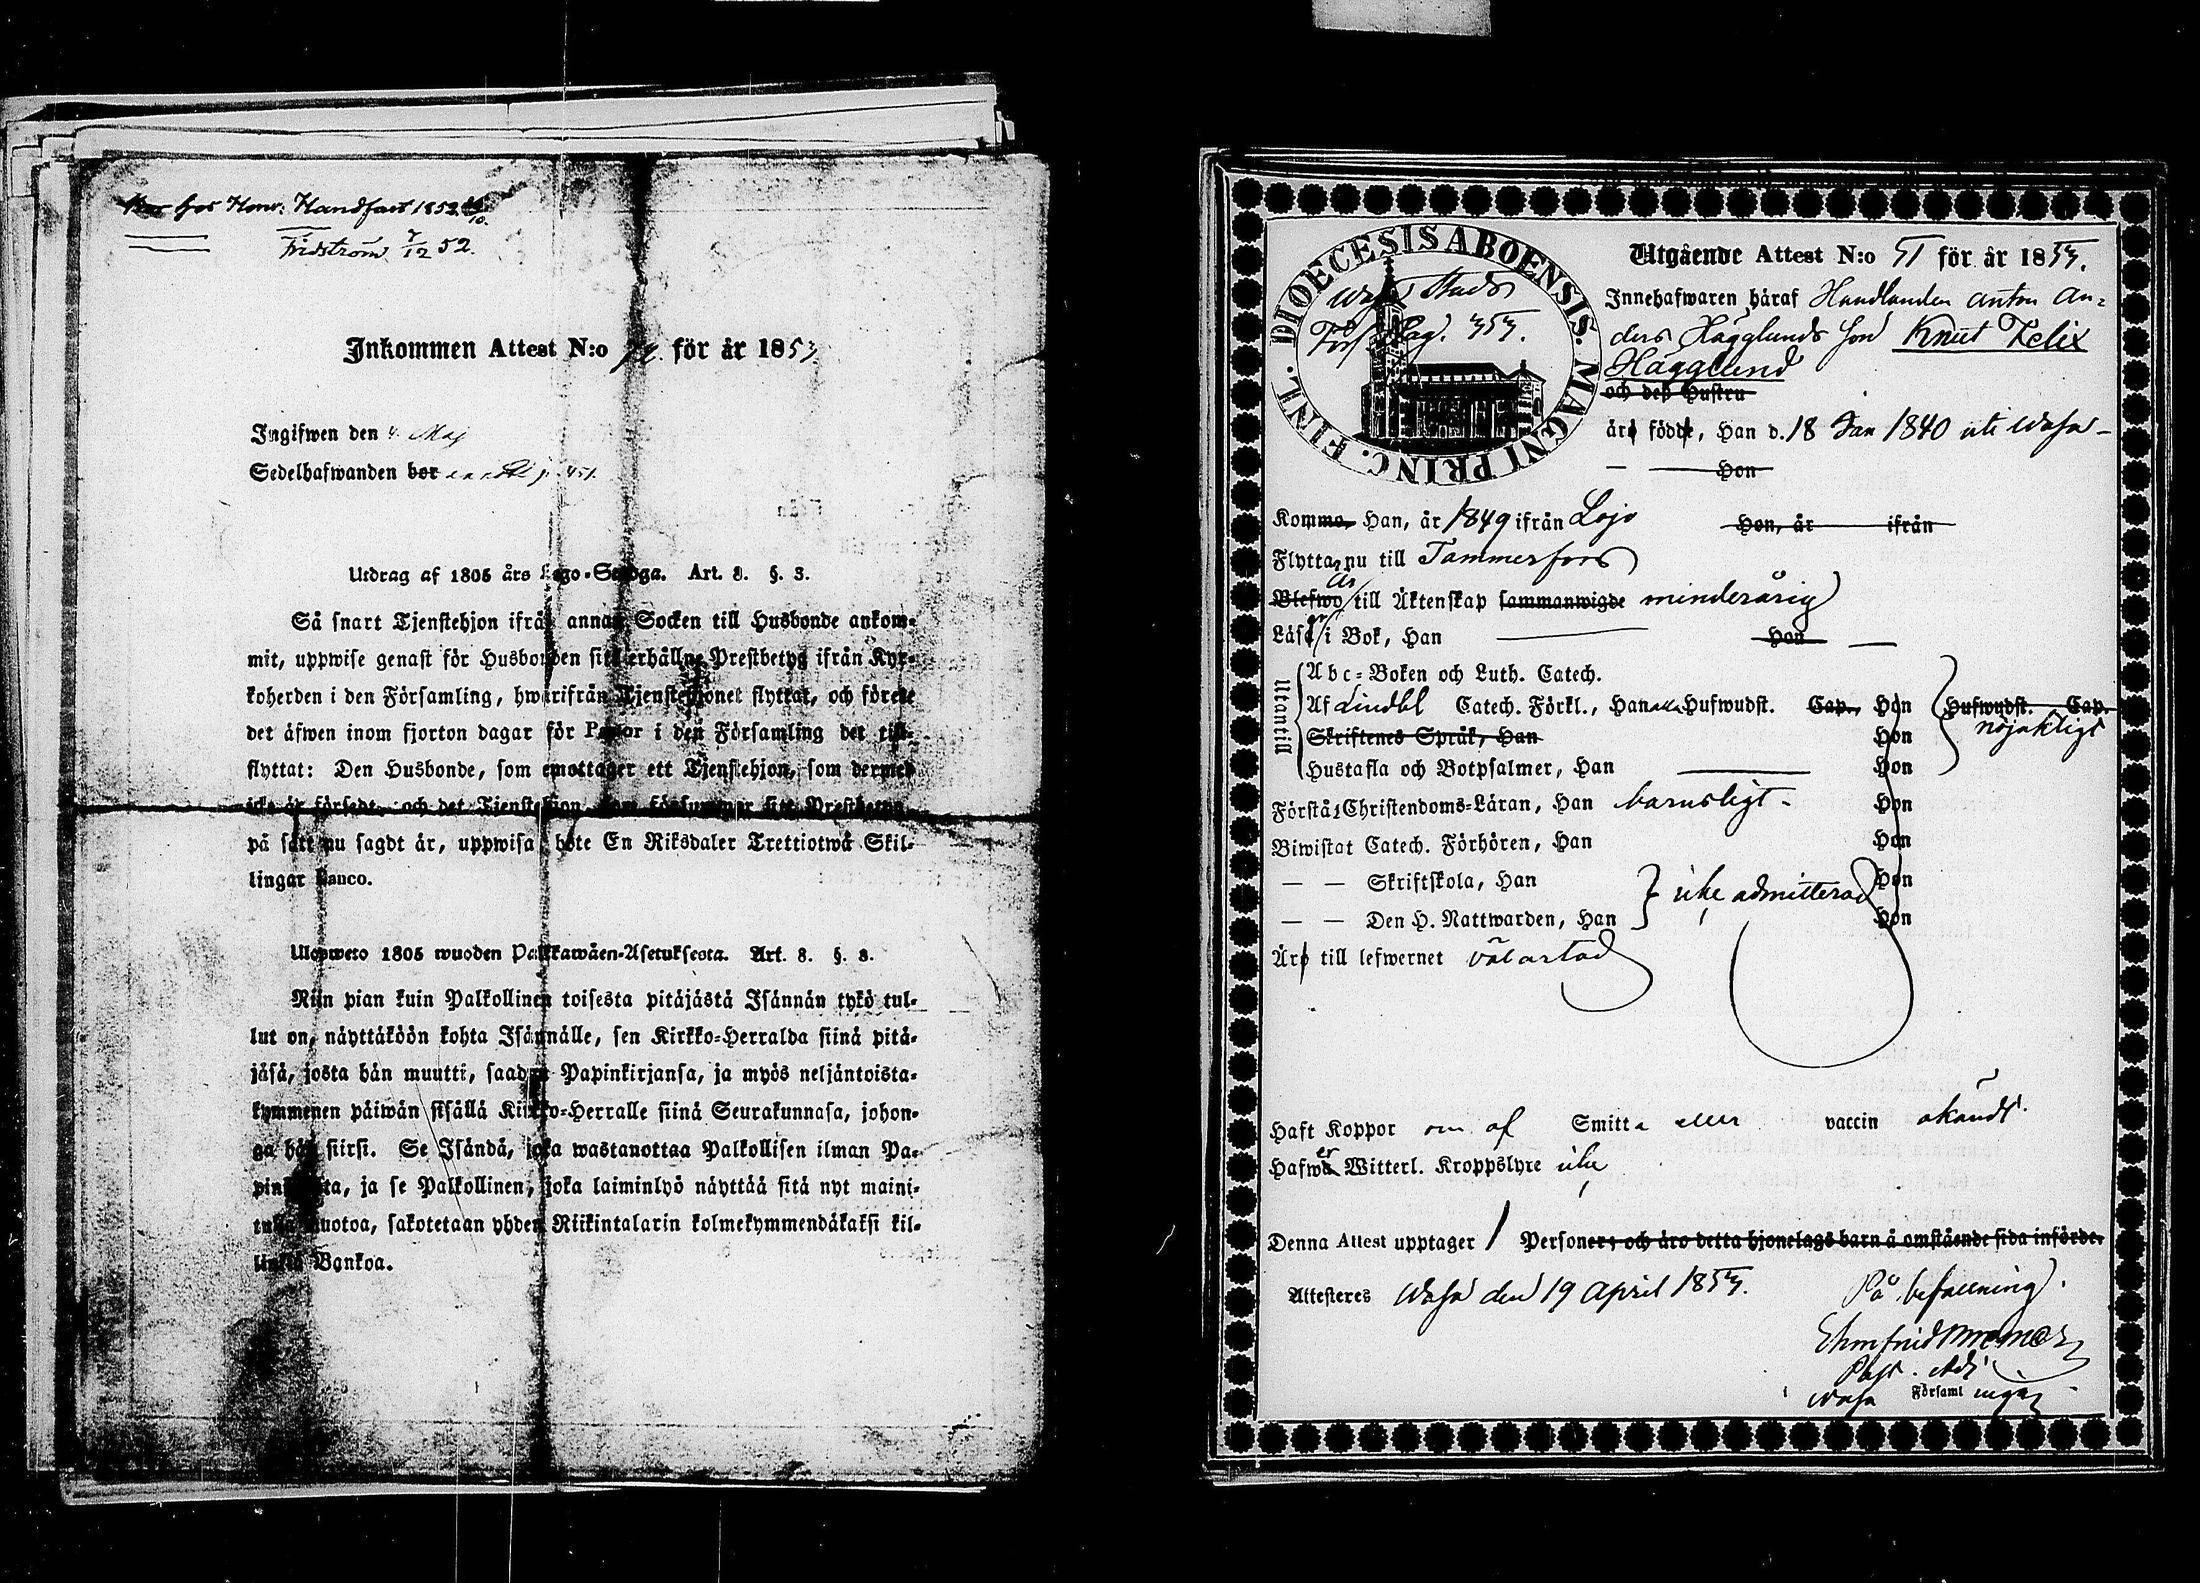 hos Handfast 1852
Fridström 7/12 52.
Inkommen Attest N:o för år 1853
Ingifwen den 4. Maj
Sedelhafwanden bor
Utdrag af 1805 års Lego-Stadga. Art. 8. §. 3.
Så snart Tjenstehjon ifrån annan Socken till Husbonde ankom-
mit, uppwise genast för Husbonden sitt erhållne Prestbetyg ifrån Kyr-
koherden i den Församling, hwarifrån Tjenstehjonet flyttat, och förete
det äfwen inom fjorton dagar för Pastor i den Församling det till-
flyttat: Den Husbonde, som emottager ett Tjenstehjon, som dermed
icke är försedt, och det Tjenstehjon, som försummar sitt Prestbetyg
på sätt nu sagdt är, uppwisa, böte En Riksdaler Trettiotwå Skil-
lingar Banco.
Ulosweto 1805 wuoden Palkkawäen-Asetuksesta. Art. 8. §. 3.
Niin pian kuin Palkollinen toisesta pitäjästä Isännän tykö tul-
lut on, näyttäköön kohta Isännälle, sen Kirkko-Herralda siinä pitä-
jäsä, josta hän muutti, saadun Papinkirjansa, ja myös neljäntoista-
kymmenen päiwän sisällä Kirkko-Herralle siinä Seurakunnasa, johon-
ga hän siirsi. Se Isändä, joka wastanottaa Palkollisen ilman Pa-
pinkirjata, ja se Palkollinen, joka laiminlyö näyttää sitä nyt maini-
tulla muotoa, sakotetaan yhden Riikintalarin kolmekymmendäkaksi kil-
linkiä Bankoa.
DIOECESIS ABOENSIS. MAGNI PRINC. FINL.
Wasa Stads
Förs pag. 353.
Utgående Attest N:o 51 för år 1853.
Innehafwaren häraf Handlanden Anton An-
ders Hägglunds son Knut Felix
Hägglund
och deß Hustru
äro födde, Han d. 18 Jan 1840 uti Wasa
Hon
Komma, Han, år 1849 ifrån Lojo Hon, år ifrån
Flytta nu till Tammerfors
Är
Blefwo till Äktenskap sammanwigde minderårig
Läsa i Bok, Han Hon
Utantill
Abc-Boken och Luth. Catech.
Af Lindbl Catech. Förkl., Han Hufwudst. Cap., Hon Hufwudst. Cap.
nöjaktigt
Skriftenes Språk, Han Hon
Hustafla och Botpsalmer, Han Hon
Förstå Christendoms-Läran, Han barnsligt - Hon
Biwistat Catech. Förhören, Han Hon
— — Skriftskola, Han Hon
icke admitterad
— — Den H. Nattwarden, Han Hon
Äro till lefwernet välartad
Haft Koppor om af Smitta eller vaccin okändt.
er
Hafwa Witterl. Kroppslyte icke
Denna Attest upptager 1 Personer; och äro detta hjonelags barn å omstående sida införde.
Attesteres Wasa den 19 April 1853. På befallning.
Past. Adj
i Wasa Församl